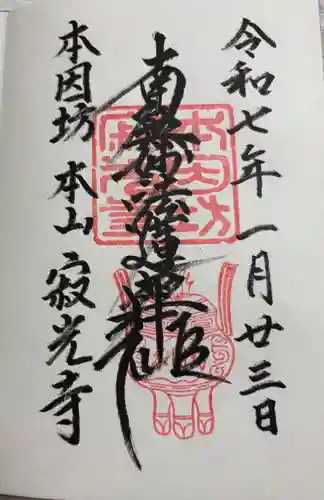 令和七年一月廿三日
南無妙法蓮華経
本因坊 本山 寂光寺